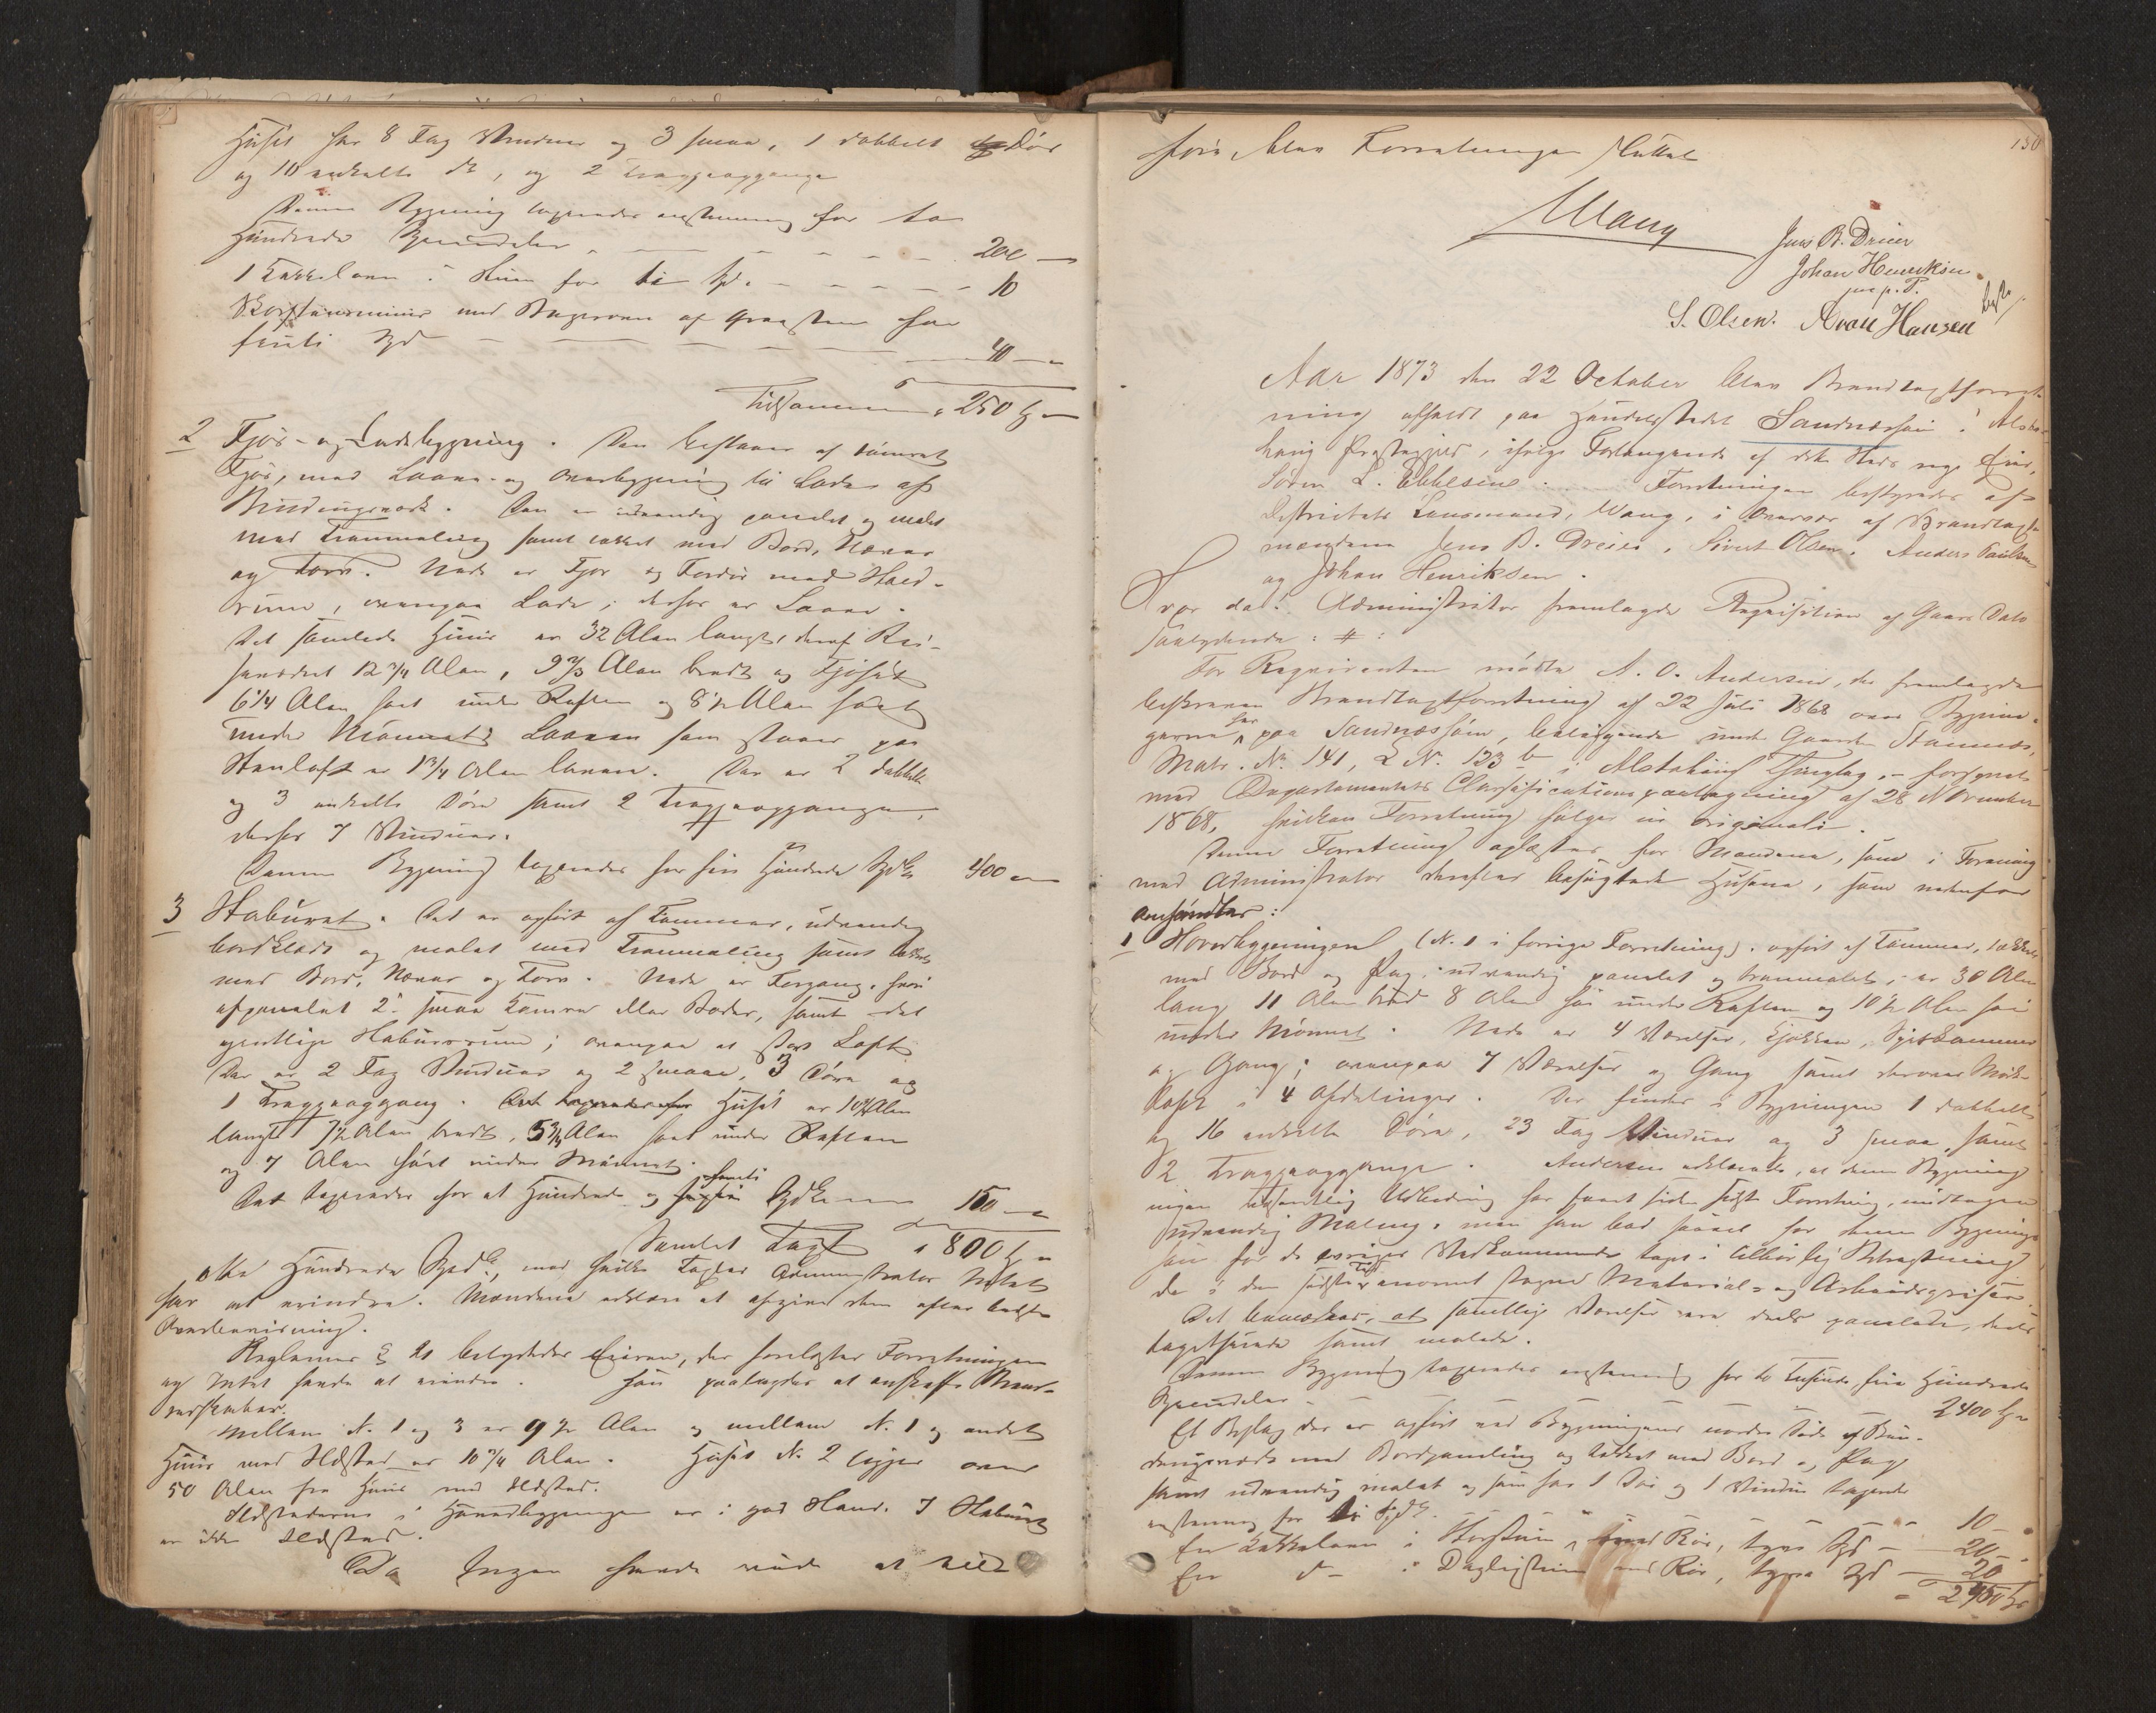 Huset har 8 Fag Vinduer og 3 smaa, 1 dobbelt Dør
og 10 enkelte do, og 2 Trappeopgange
Denne Bygning taxeredes enstemmig for to
Hundrede Speciedaler 200
1 Kakkelovn i Stuen for ti Spd. 10
Skorstensmuur med Bagerovn af Graasten for
firti Spd 40
Tilsammen 250
2 Fjøs- og Ladebygning. Den bestaaer af tømret
Fjøs, med Laave- og Overbygning til Lade af
Bindingsværk. Den er udvendig panelet og malet
med Tranmaling samt tækket med Bord, Næver
og Torv. Nede er Fjøs og Fordør med
rum, ovenpaa Lade; derhos er Laave.
Det samlede Huus er 32 Alen langt, deraf
12 3/4 Alen, 9 2/3 Alen bredt og Fjøset
6 1/4 Alen høit under Raften og 8 1/2 Alen høit
under Mønnet; Laaven som staaer paa
er 1 3/4 Alen lavere. Der er 2 dobbelte
og 3 enkelte Døre samt 2 Trappeopgange,
derhos 7 Vinduer.
Denne Bygning taxeredes for fire Hundrede Spd 400
3 Staburet. Det er opført af Tømmer, udvendig
bordklædt og malet med Tranmaling samt tækket
med Bord, Næver og Torv. Nede er Forgang, hvori
afpanelet 2 smaa Kamre eller Boder, samt det
egentlige Staburrum; ovenpaa et stort Loft
Der er 2 Fag Vinduer og 2 smaae, 3 Døre og
1 Trappeopgang. Huset er 10 Alen
langt 7 1/2 Alen bredt, 5 3/4 Alen høit under Raften
og 7 Alen høit under Mønnet.
Det taxeredes for et Hundrede og femti Spd 150
Samlet Taxt 800
otte Hundrede Spd, med hvilke Taxter Administrator Intet
har at erindre. Mændene erklære at afgive dem efter bedste
Overbeviisning.
Reglernes § 21 betydedes Eieren, der forelagdes Forretningen
og Intet havde at erindre. Han paalagdes at anskaffe Brand-
redskaber.
Mellem N. 1 og 3 er 9 1/2 Alen og mellem N. 1 og andet
Huus med Ildsted er 10 3/4 Alen. Huset N. 2 ligger over
50 Alen fra Huus med Ildsted.
Ildstederne i Hovedbygningen er i god Stand. I Staburet
er ikke Ildsted.
Da Ingen havde videre at til
150
føie, blev Forretningen sluttet
Wang
Jens B. Dreier
Johan Henriksen
m. p. P.
S. Olsen. Hansen
Aar 1873 den 22 October blev Brandtaxtforret-
ning afholdt paa Handelsstedet Sandnessøen i Alsta-
houg Præstegjeld, ifølge Forlangende af dette Steds nye Eier,
Søren L. Ebbesen. Forretningen bestyredes af
Districtets Lensmand, Wang, i Overvær af Brandtaxt-
mændene Jens B. Dreier, Sivert Olsen, Anders Paulsen
og Johan Henriksen.
Hvor da: Administrator fremlagde Requisition af Gaars Dato
saalydende: #:
For Reqvirenten mødte A. O. Andersen, der fremlagde
beskreven Brandtaxtforretning af 22 Juli 1868 over Bygnin-
gerne her paa Sandnessøen, beliggende under Gaarden Stamnes,
Matr. No. 141, L No. 123 b i Alstahaug Thinglag, - forsynet
med Departementets Classificationspaategning af 28 November
1868, hvilken Forretning følger in originali.
Denne Forretning oplæstes for Mændene, som i Forening
med Administrator derefter besigtede Husene, som nedenfor
anføres:
1 Hovedbygningen (N. 1 i forrige Forretning). opført af Tømmer, tækket
med Bord og Pap, udvendig panelet og tranmalet, er 30 Alen
lang 11 Alen bred 8 Alen høi under Raften og 10 1/2 Alen høi
under Mønnet. Nede er 4 Værelser, Kjøkken, Spiskammer
og Gang; ovenpaa 7 Værelser og Gang samt derover Mørk-
loft i 4 Afdelinger. Der findes i Bygningen 1 dobbelt
og 16 enkelte Døre, 23 Fag Vinduer og 3 smaa, samt
2 Trappeopgange. Andersen erklærede, at denne Bygning
ingen væsentlig Udbedring har faaet siden sidste Forretning, undtagen
udvendig Maling, men han bad saavel for denne Bygning
som for de øvriges Vedkommende taget i tilbørlig Betragtning
de i den sidste Tid enormt stegne Material- og Arbeidspriser.
Det bemærkes, at samtlige Værelser ere deels panelede, deels
tapetserede samt malede.
Denne Bygning taxeredes enstemmig for to Tusinde, fire Hundrede
Speciedaler 2400
Et Bislag der er opført ved Bygningens nordre Side af Bin-
dingsværk med Bordpaneling og tækket med Bord og Pap
samt udvendig malet og som har 1 Dør og 1 Vindue taxeredes
enstemmig for ti Spd. 10
En Kakkelovn i Storstuen, med Rør, tyve Spd 20
En do i Dagligstuen med Rør, tyve Spd 20
2450